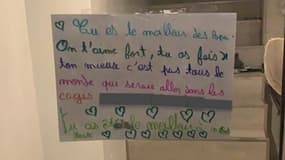 Tu es le meilleur des Rois.
On t'aime fort, tu as fais de
ton mieux c'est pas tous le
monde qui serais aller dans les
cages
Tu as été le meilleur